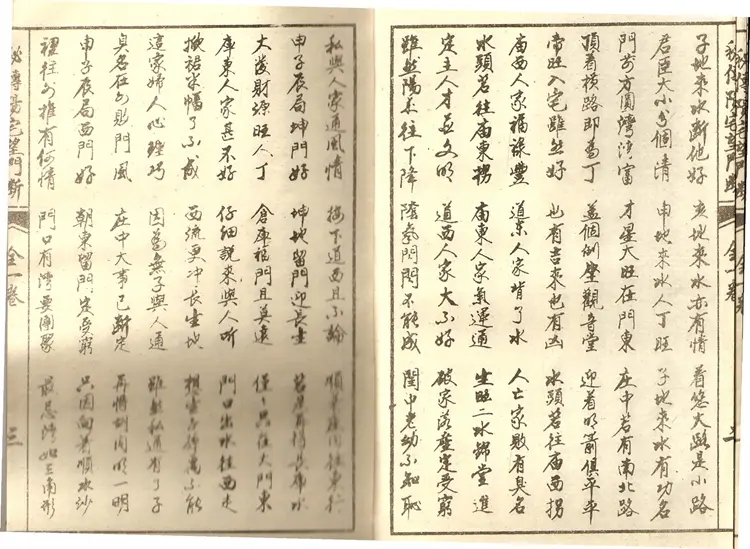 秘傳陽宅望門斷 全一卷 二
子地來水斷他好 亥地來水亦有情 看您大路是小路
君臣大小分個清 申地來水人丁旺 子地來水有功名
門前方圓灣灣富 才星大旺在門東 庄中若有南北路
頂着橫路即為丁 蓋個倒座觀音堂 迎着明箭慎平平
帝旺入宅雖然好 也有吉來也有凶 水頭若往庙西拐
庙西人家福祿豐 道東人家背了水 人亡家敗有臭名
水頭若往庙東拐 庙東人家氣運通 生旺二水歸堂進
定主人才並文明 道西人家大不好 破家落產定受窮
雖然陽氣往下降 陰氣閉門不能成 閨中老幼不知恥
私與人家通風情 接下道西且不論
申子辰局坤門好 坤地留門迎長生 若是
大發財源旺人丁 倉庫福門且莫遠 僅僅只在大門東
庫東人家甚不好 仔細說來與人听 門口出水往西走
掀裙米幅了不成 西流更冲長生地
這家婦人心理巧 因為無子與人通 雖然私通有了子
臭名在外敗門風 庄中大事已断定 再 明一明
申子辰局西門好 朝東留門定受窮 只因向着順水沙
裡往外推有何情 門口有灣要團聚 最忌灣如三角形
秘傳陽宅望門斷 全一卷 三